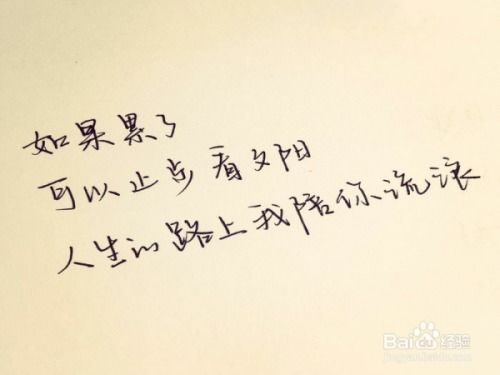 如果累了
可以止步看夕阳
人生的路上我陪你流浪
Baidu经验
jingyan.baidu.com